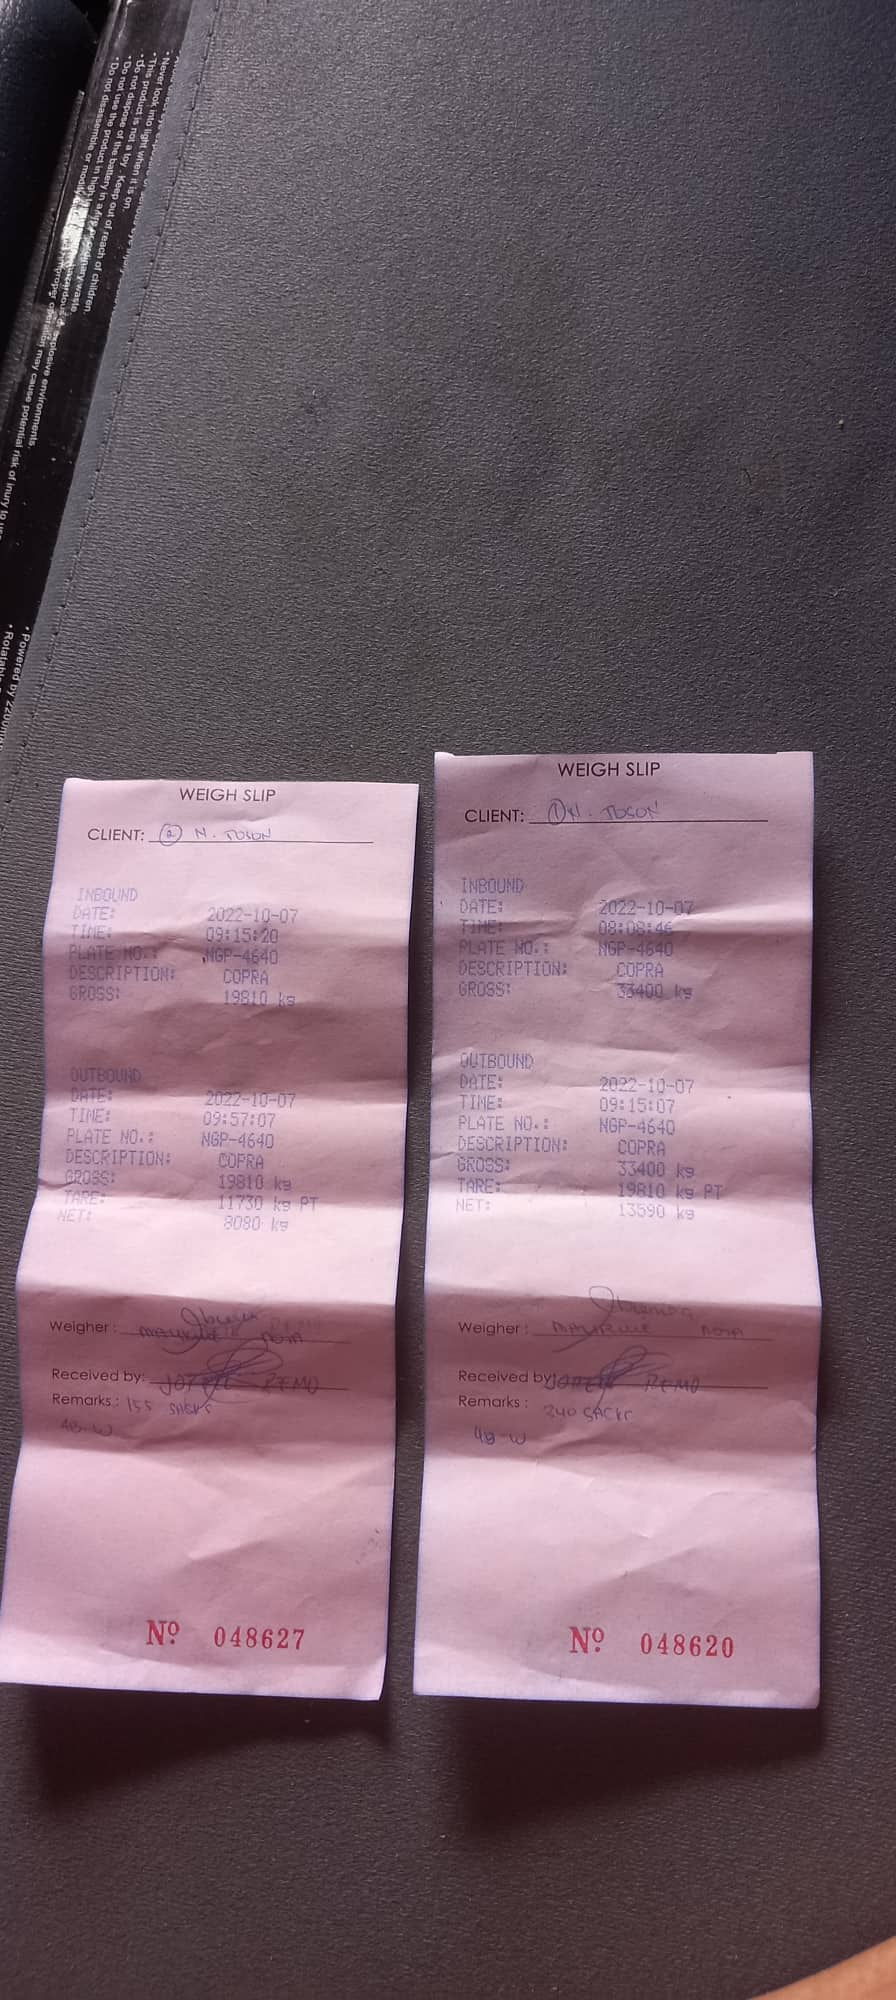 • Never look into light when it is on.
• This product is not a toy. Keep out of reach of children.
• Do not dispose of the battery in a fire or ordinary waste
• Do not use the product in high
• Do not disassemble or modify
explosive environments.
operation may cause potential risk of inury to
• Powered by 2200m
WEIGH SLIP
CLIENT: (2) N. TOSON
INBOUND
DATE: 2022-10-07
TIME: 09:15:20
PLATE NO.: NGP-4640
DESCRIPTION: COPRA
GROSS: 19810 kg
OUTBOUND
DATE: 2022-10-07
TIME: 09:57:07
PLATE NO.: NGP-4640
DESCRIPTION: COPRA
GROSS: 19810 kg
TARE: 11730 kg PT
NET: 8080 kg
Weigher :
Received by: REMO
Remarks : 155 SACKS
48-W
Nº 048627
WEIGH SLIP
CLIENT: (1) N. TOSON
INBOUND
DATE: 2022-10-07
TIME: 08:08:46
PLATE NO.: NGP-4640
DESCRIPTION: COPRA
GROSS: 33400 kg
OUTBOUND
DATE: 2022-10-07
TIME: 09:15:07
PLATE NO.: NGP-4640
DESCRIPTION: COPRA
GROSS: 33400 kg
TARE: 19810 kg PT
NET: 13590 kg
Weigher :
Received by: REMO
Remarks : 240 SACKS
48-W
Nº 048620